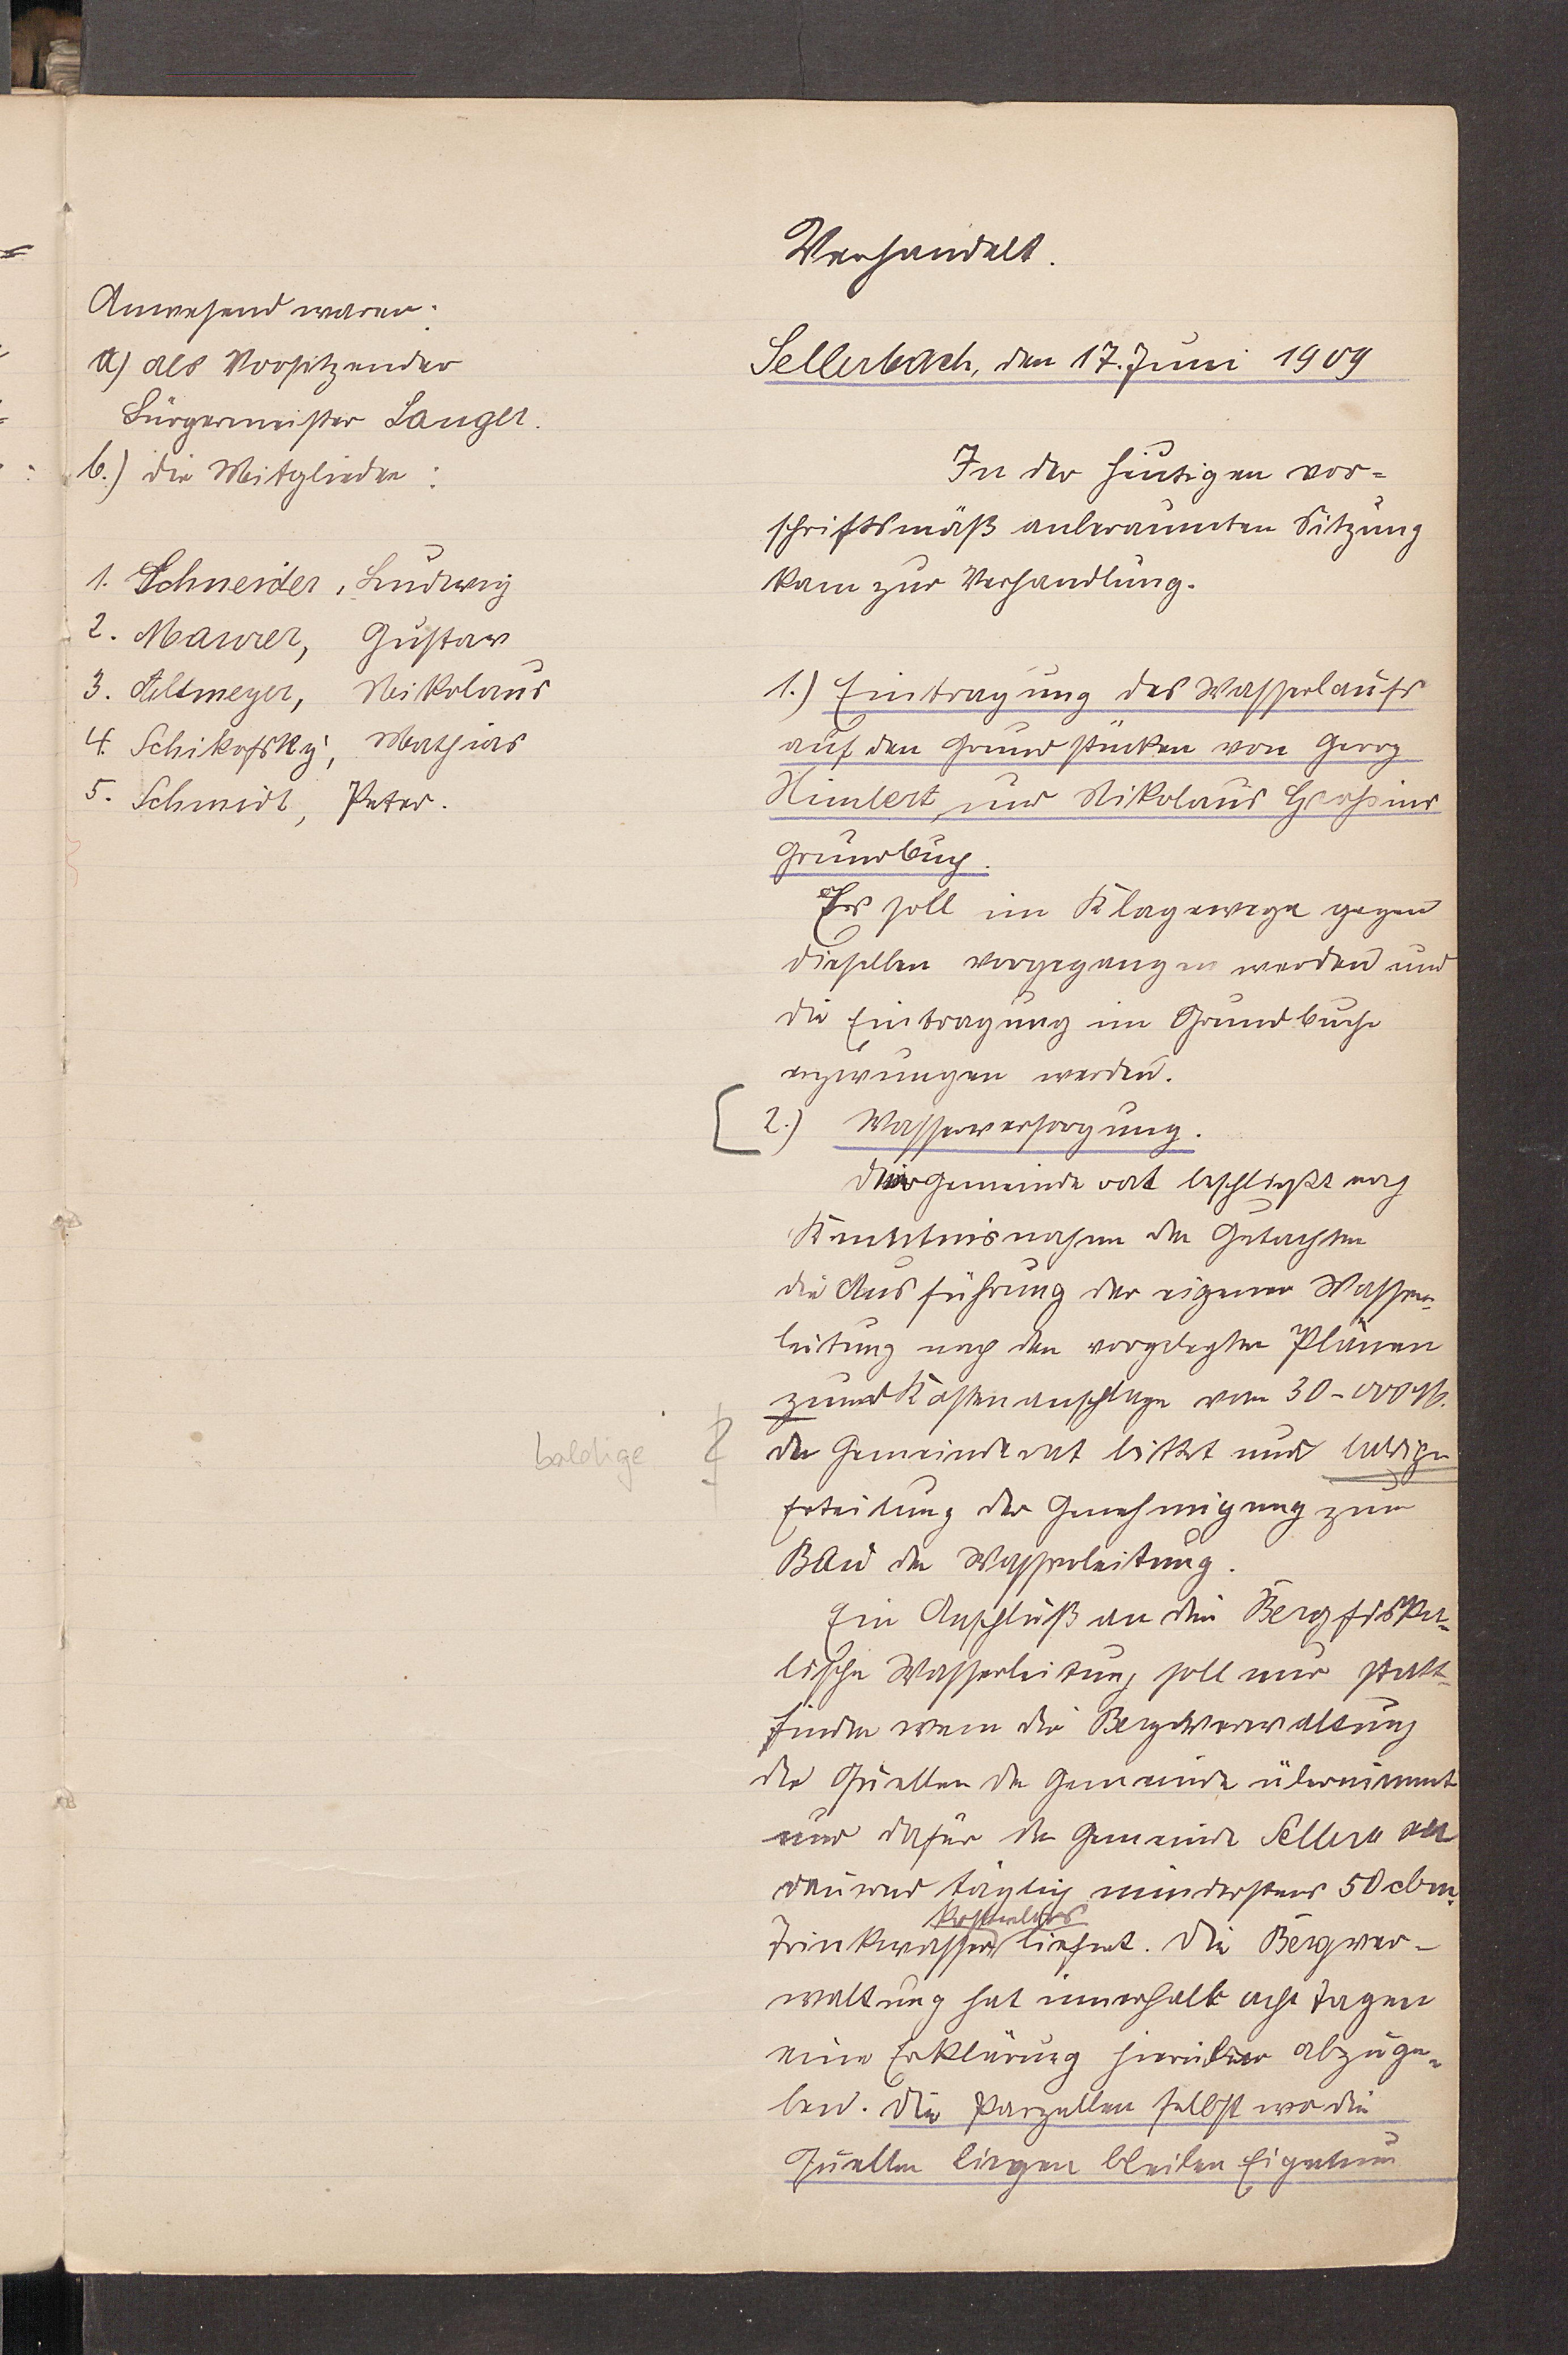 Anwesend waren:
a) als Vorsitzender
Bürgermeister Langer.
b.) die Mitglieder:
1. Schneider, Ludwig
2. Maurer, Gustav
3. Altmeyer, Nikolaus
4. Schikofsky, Mathias
5. Schmidt, Peter.
baldige
Verhandelt.
Sellerbach, den 17. Juni 1909
In der heutigen vor=
schriftsmäß anberaumten Sitzung
kam zur Verhandlung.
1.) Eintragung des Wasserlaufs
auf den Grundstücken von Georg
Himbert und Nikolaus Groß ins
Grundbuch.
Es soll im Klagewege gegen
dieselben vorgegangen werden und
die Eintragung im Grundbuche
erzwungen werden.
2.) Wasserversorgung.
Der Gemeinderat beschließt nach
Kenntnisnahme der Gutachten
die Ausführung der eigenen Wasser-
leitung nach den vorgelegten Plänen
und Kostenanschlage von 30-000 M.
der Gemeinderat bittet um baldige
Erteilung der Genehmigung zum
Bau der Wasserleitung.
Ein Anschluß an die Bergfiska-
lische Wasserleitung soll nur statt-
finden wenn die Bergverwaltung
die Quellen der Gemeinde übernimmt
und dafür der Gemeinde
dauernd täglich mindestens 50 cbm.
kostenlos
Trinkwasser liefert. Die Bergver-
waltung hat innerhalb acht Tagen
eine Erklärung hierüber abzuge-
ben. Die Parzellen selbst wo die
Quellen liegen bleiben Eigentum